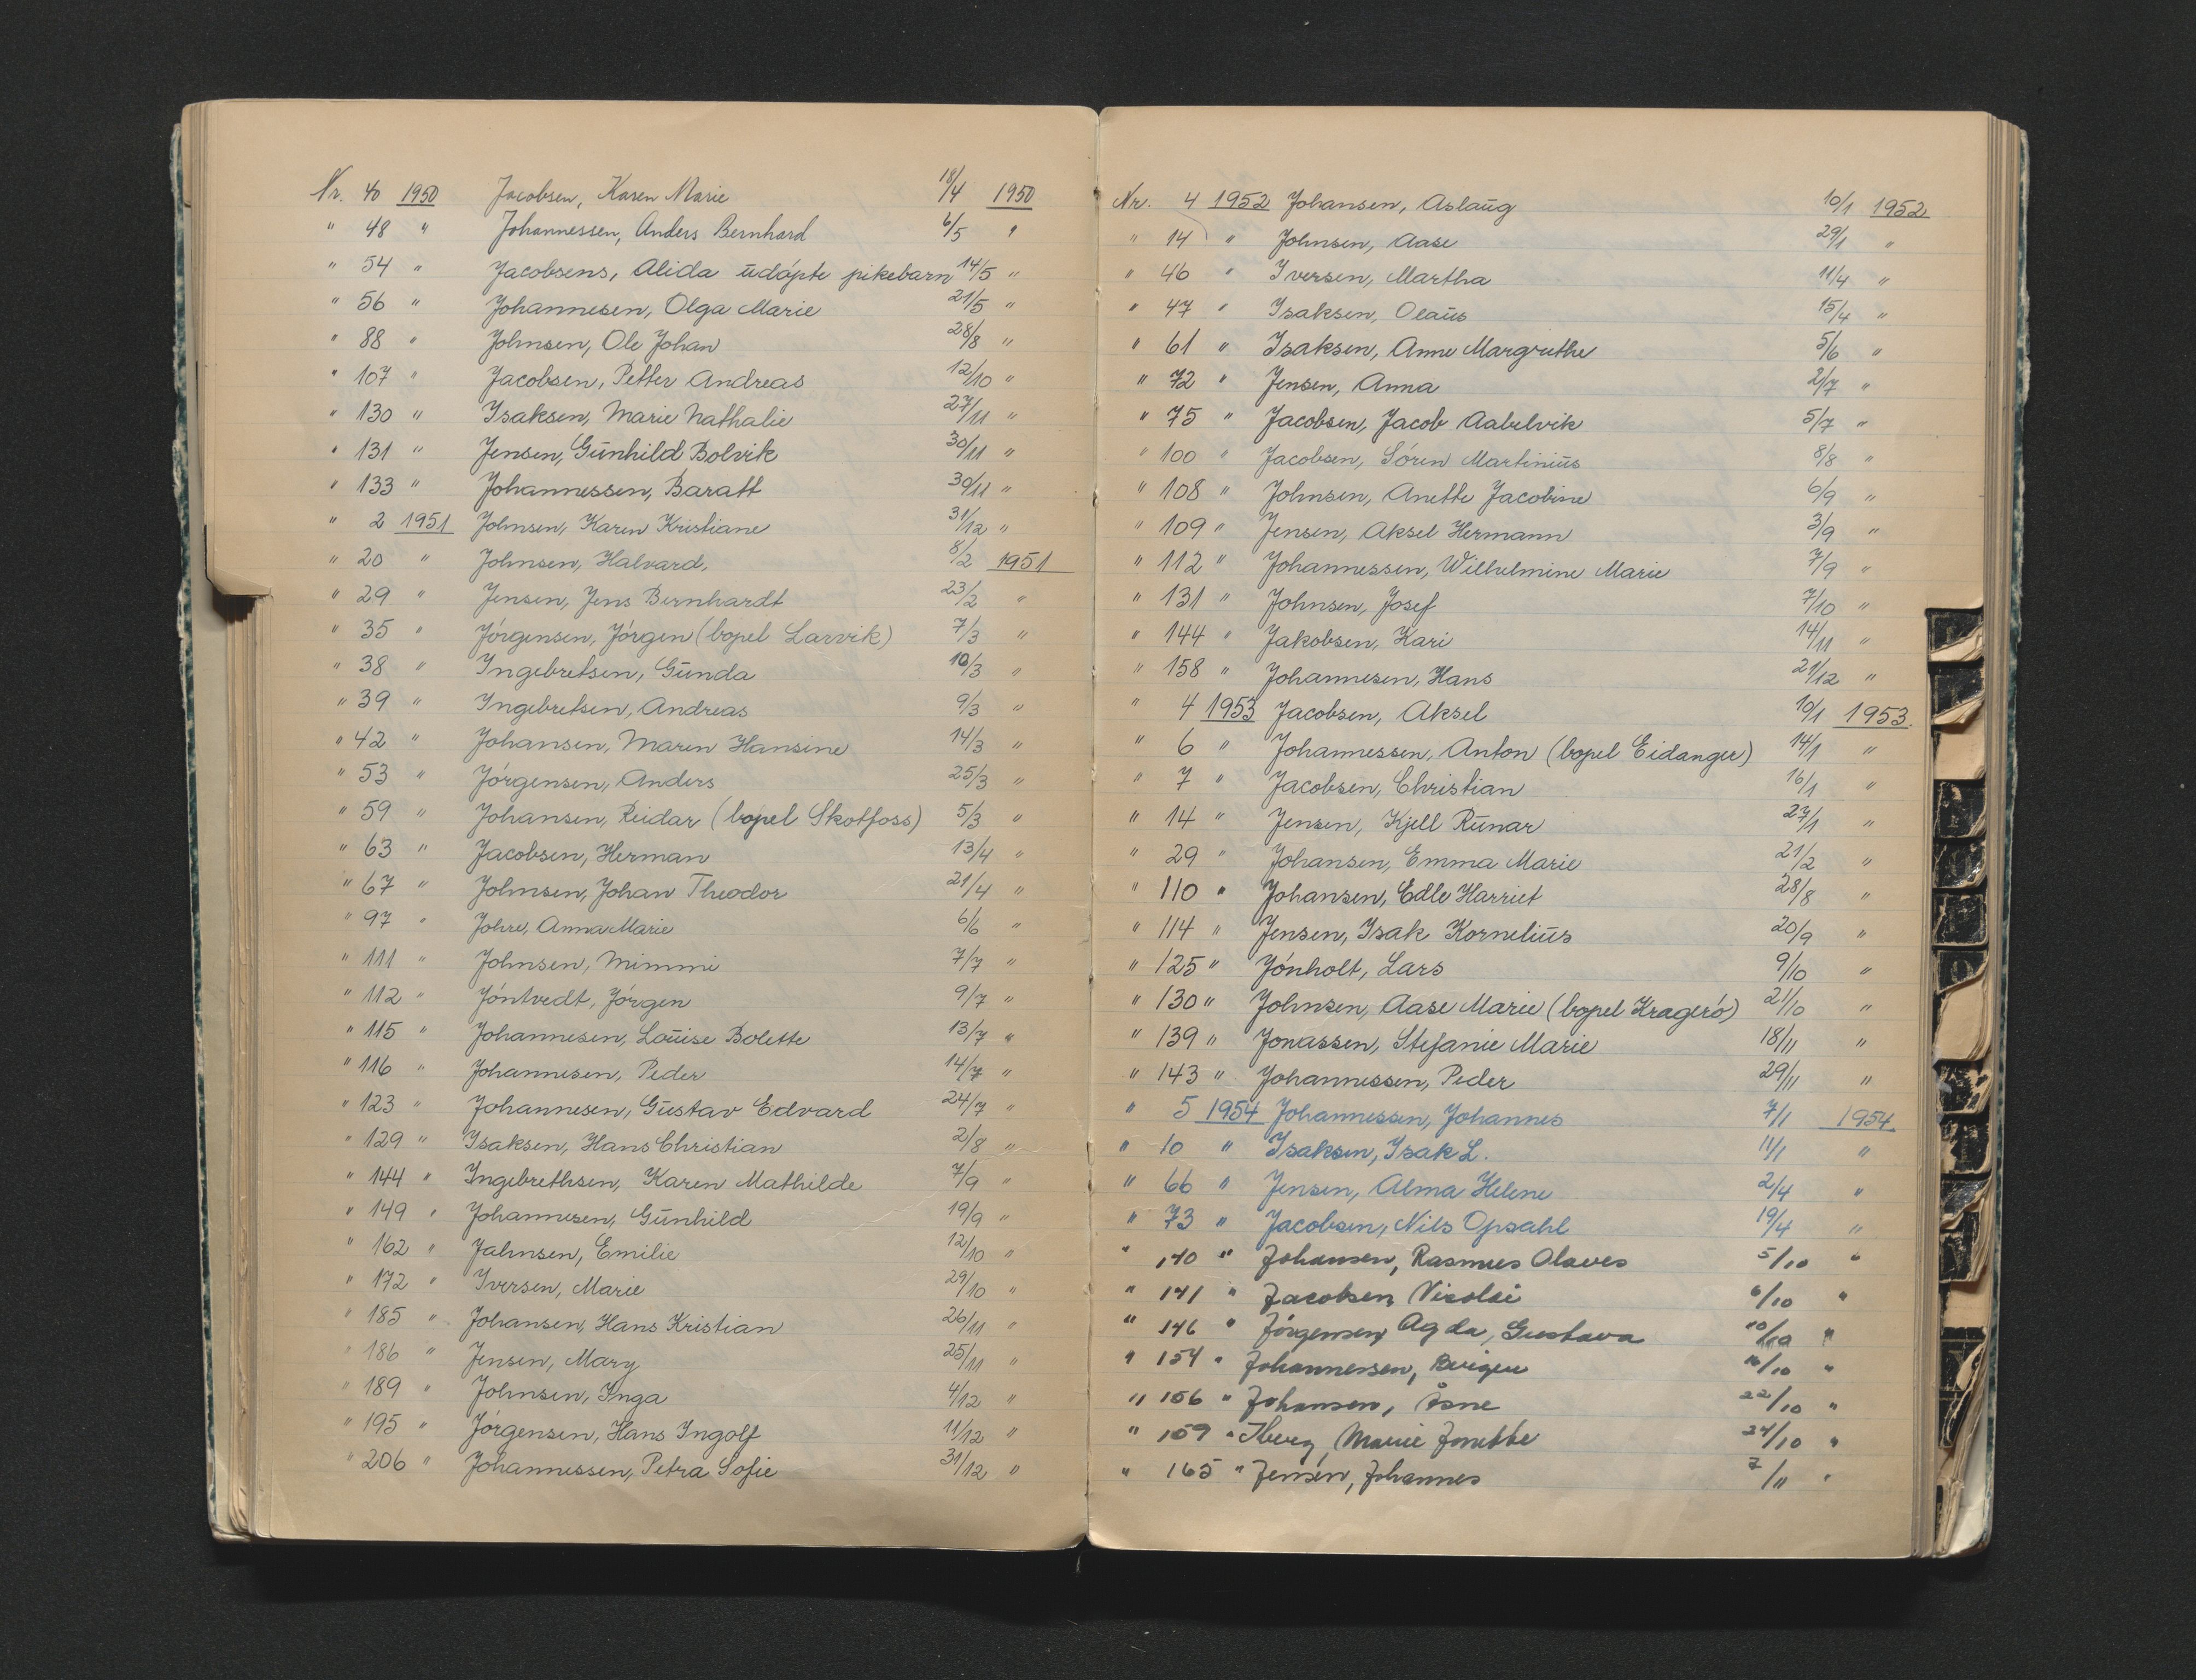 Nr. 40 1950 Jacobsen, Karen Marie 18/4 1950
" 48 " Johannessen, Anders Bernhard 6/5 "
" 54 " Jacobsens, Alida udøpte pikebarn 14/5 "
" 56 " Johannesen, Olga Marie 21/5 "
" 88 " Johnsen, Ole Johan 28/8 "
" 107 " Jacobsen, Petter Andreas 12/10 "
" 130 " Isaksen, Marie Nathalie 27/11 "
" 131 " Jensen, Gunhild Bolvik 30/11 "
" 133 " Johannessen, Baratt 30/11 "
" 2 1951 Johnsen, Karen Kristiane 31/12 "
" 20 " Johnsen, Halvard, 8/2 1951
" 29 " Jensen, Jens Bernhardt 23/2 "
" 35 " Jørgensen, Jørgen (bopel Larvik) 7/3 "
" 38 " Ingebretsen, Gunda 10/3 "
" 39 " Ingebretsen, Andreas 9/3 "
" 42 " Johansen, Maren Hansine 14/3 "
" 53 " Jørgensen, Anders 25/3 "
" 59 " Johansen, Reidar (bopel Skotfoss) 5/3 "
" 63 " Jacobsen, Herman 13/4 "
" 67 " Johnsen, Johan Theodor 21/4 "
" 97 " Johre, Anna Marie 6/6 "
" 111 " Johnsen, Mimmi 7/7 "
" 112 " Jøntvedt, Jørgen 9/7 "
" 115 " Johannesen, Louise Bolette 13/7 "
" 116 " Johannesen, Peder 14/7 "
" 123 " Johannesen, Gustav Edvard 24/7 "
" 129 " Isaksen, Hans Christian 2/8 "
" 144 " Ingebrethsen, Karen Mathilde 7/9 "
" 149 " Johannesen, Gunhild 19/9 "
" 162 " Jahnsen, Emilie 12/10 "
" 172 " Iversen, Marie 29/10 "
" 185 " Johansen, Hans Kristian 26/11 "
" 186 " Jensen, Mary 25/11 "
" 189 " Johnsen, Inga 4/12 "
" 195 " Jørgensen, Hans Ingolf 11/12 "
" 206 " Johannessen, Petra Sofie 31/12 "
Nr. 4 1952 Johansen, Aslaug 10/1 1952
" 14 " Johnsen, Aase 29/1 "
" 46 " Iversen, Martha 11/4 "
" 47 " Isaksen, Olaus 15/4 "
" 61 " Isaksen, Anne Margrethe 5/6 "
" 72 " Jensen, Anna 2/7 "
" 75 " Jacobsen, Jacob Aabelvik 5/7 "
" 100 " Jacobsen, Søren Martinius 8/8 "
" 108 " Johnsen, Anette Jacobine 6/9 "
" 109 " Jensen, Aksel Hermann 3/9 "
" 112 " Johannessen, Wilhelmine Marie 7/9 "
" 131 " Johnsen, Josef 7/10 "
" 144 " Jakobsen, Kari 14/11 "
" 158 " Johannesen, Hans 21/12 "
" 4 1953 Jacobsen, Aksel 10/1 1953.
" 6 " Johannessen, Anton (bopel Eidanger) 14/1 "
" 7 " Jacobsen, Christian 16/1 "
" 14 " Jensen, Kjell Runar 27/1 "
" 29 " Johansen, Emma Marie 21/2 "
" 110 " Johansen, Edle Harriet 28/8 "
" 114 " Jensen, Isak Kornelius 20/9 "
" 125 " Jønholt, Lars 9/10 "
" 130 " Johnsen, Aase Marie (bopel Kragerø) 21/10 "
" 139 " Jonassen, Stefanie Marie 18/11 "
" 143 " Johannessen, Peder 29/11 "
" 5 1954 Johannessen, Johannes 7/1 1954.
" 10 " Isaksen, Isak L. 11/1 "
" 66 " Jensen, Alma Helene 2/4 "
" 73 " Jacobsen, Nils Opsahl 19/4 "
" 140 " Johansen, Rasmus Olaves 5/10 "
" 141 " Jacobsen, Nicolai 6/10 "
" 146 " Jørgensen, Agda, Gustava 10/10 "
" 154 " Johannessen, 16/10 "
" 156 " Johansen, Åsne 22/10 "
" 159 " Iberg, Marie Jonette 24/10 "
" 165 " Jensen, Johannes 7/11 "